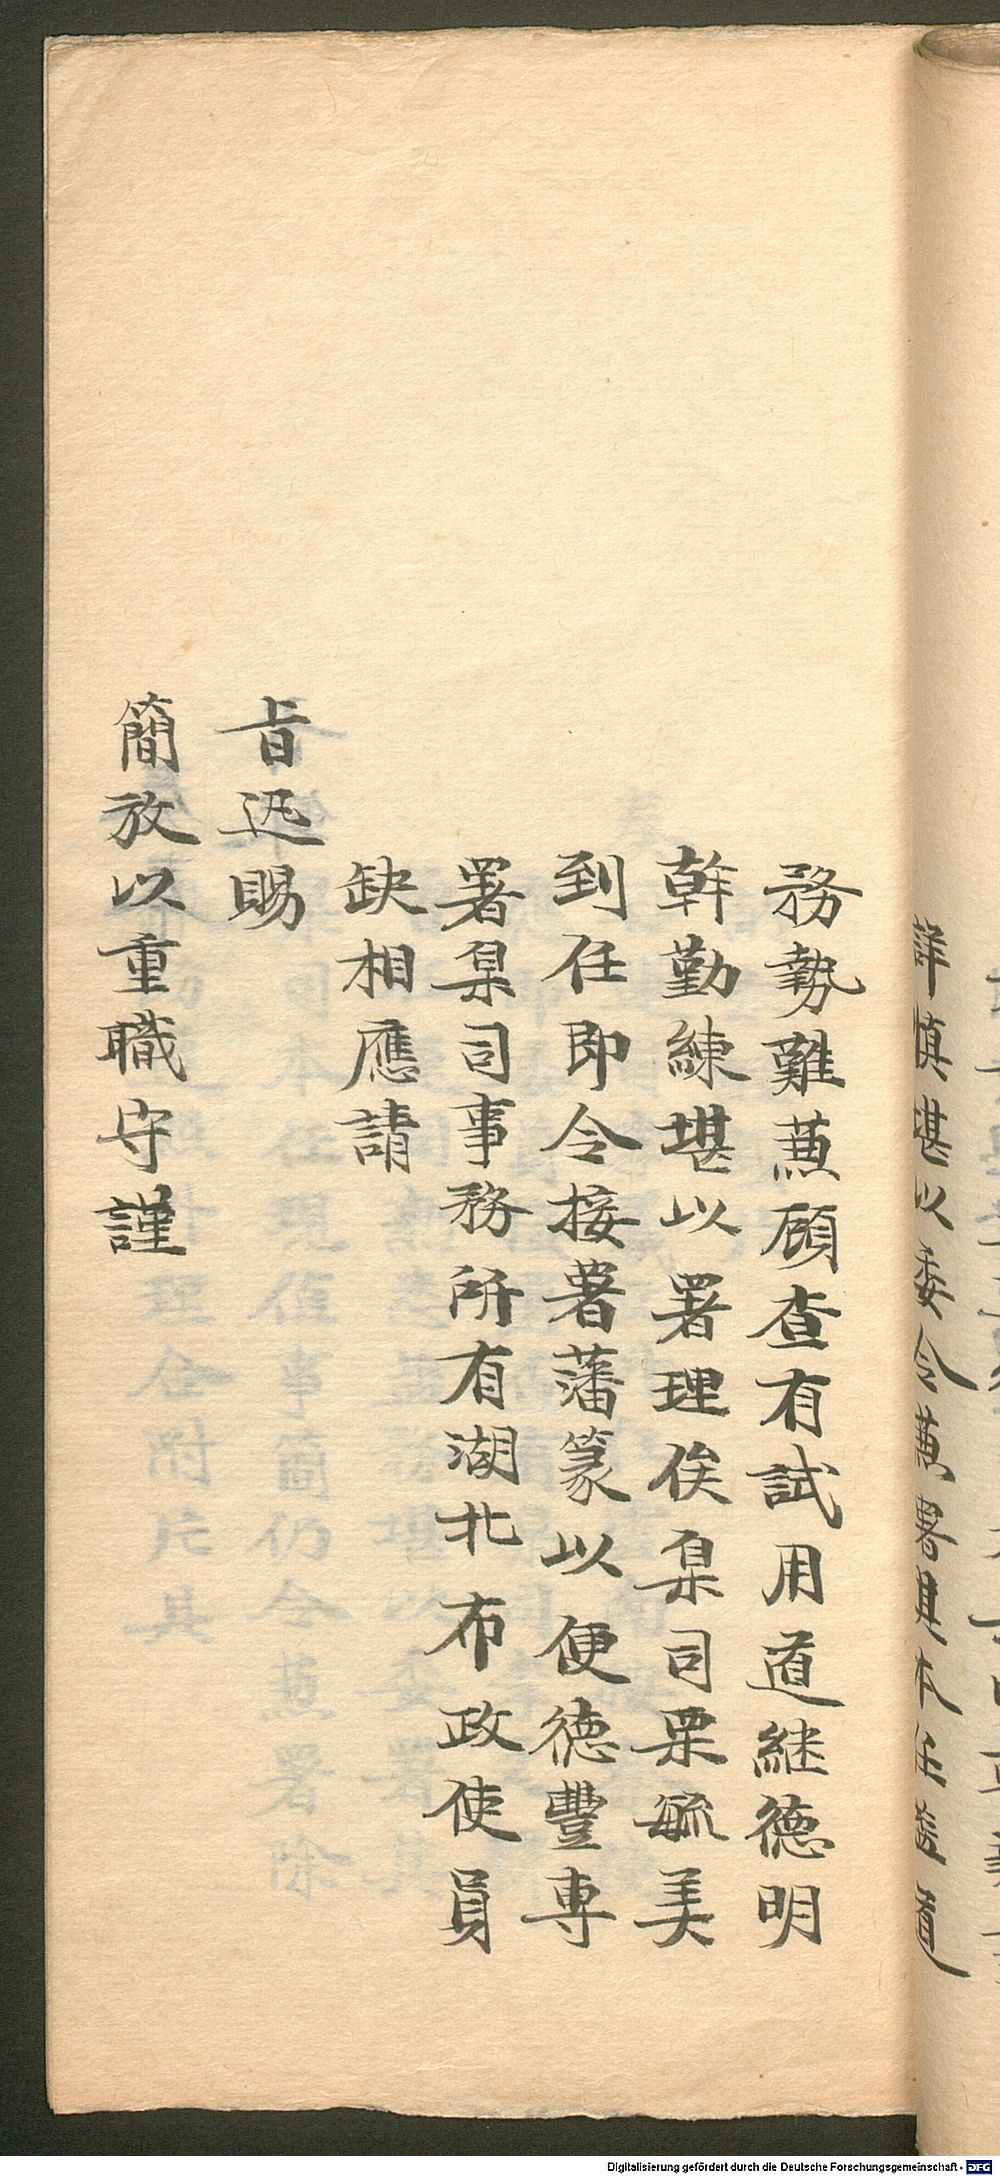 詳慎堪以委令蕙署其本任
務勢難蕙顧查有試用道継德明
幹勤練堪以署理俟臬司栗毓美
到任即令接署藩篆以便德豐専
署臬司事務所有湖北布政使員
缺相應請
旨迅賜
簡放以重職守謹
Digitalisierung gefördert durch die Deutsche Forschungsgemeinschaft - DFG